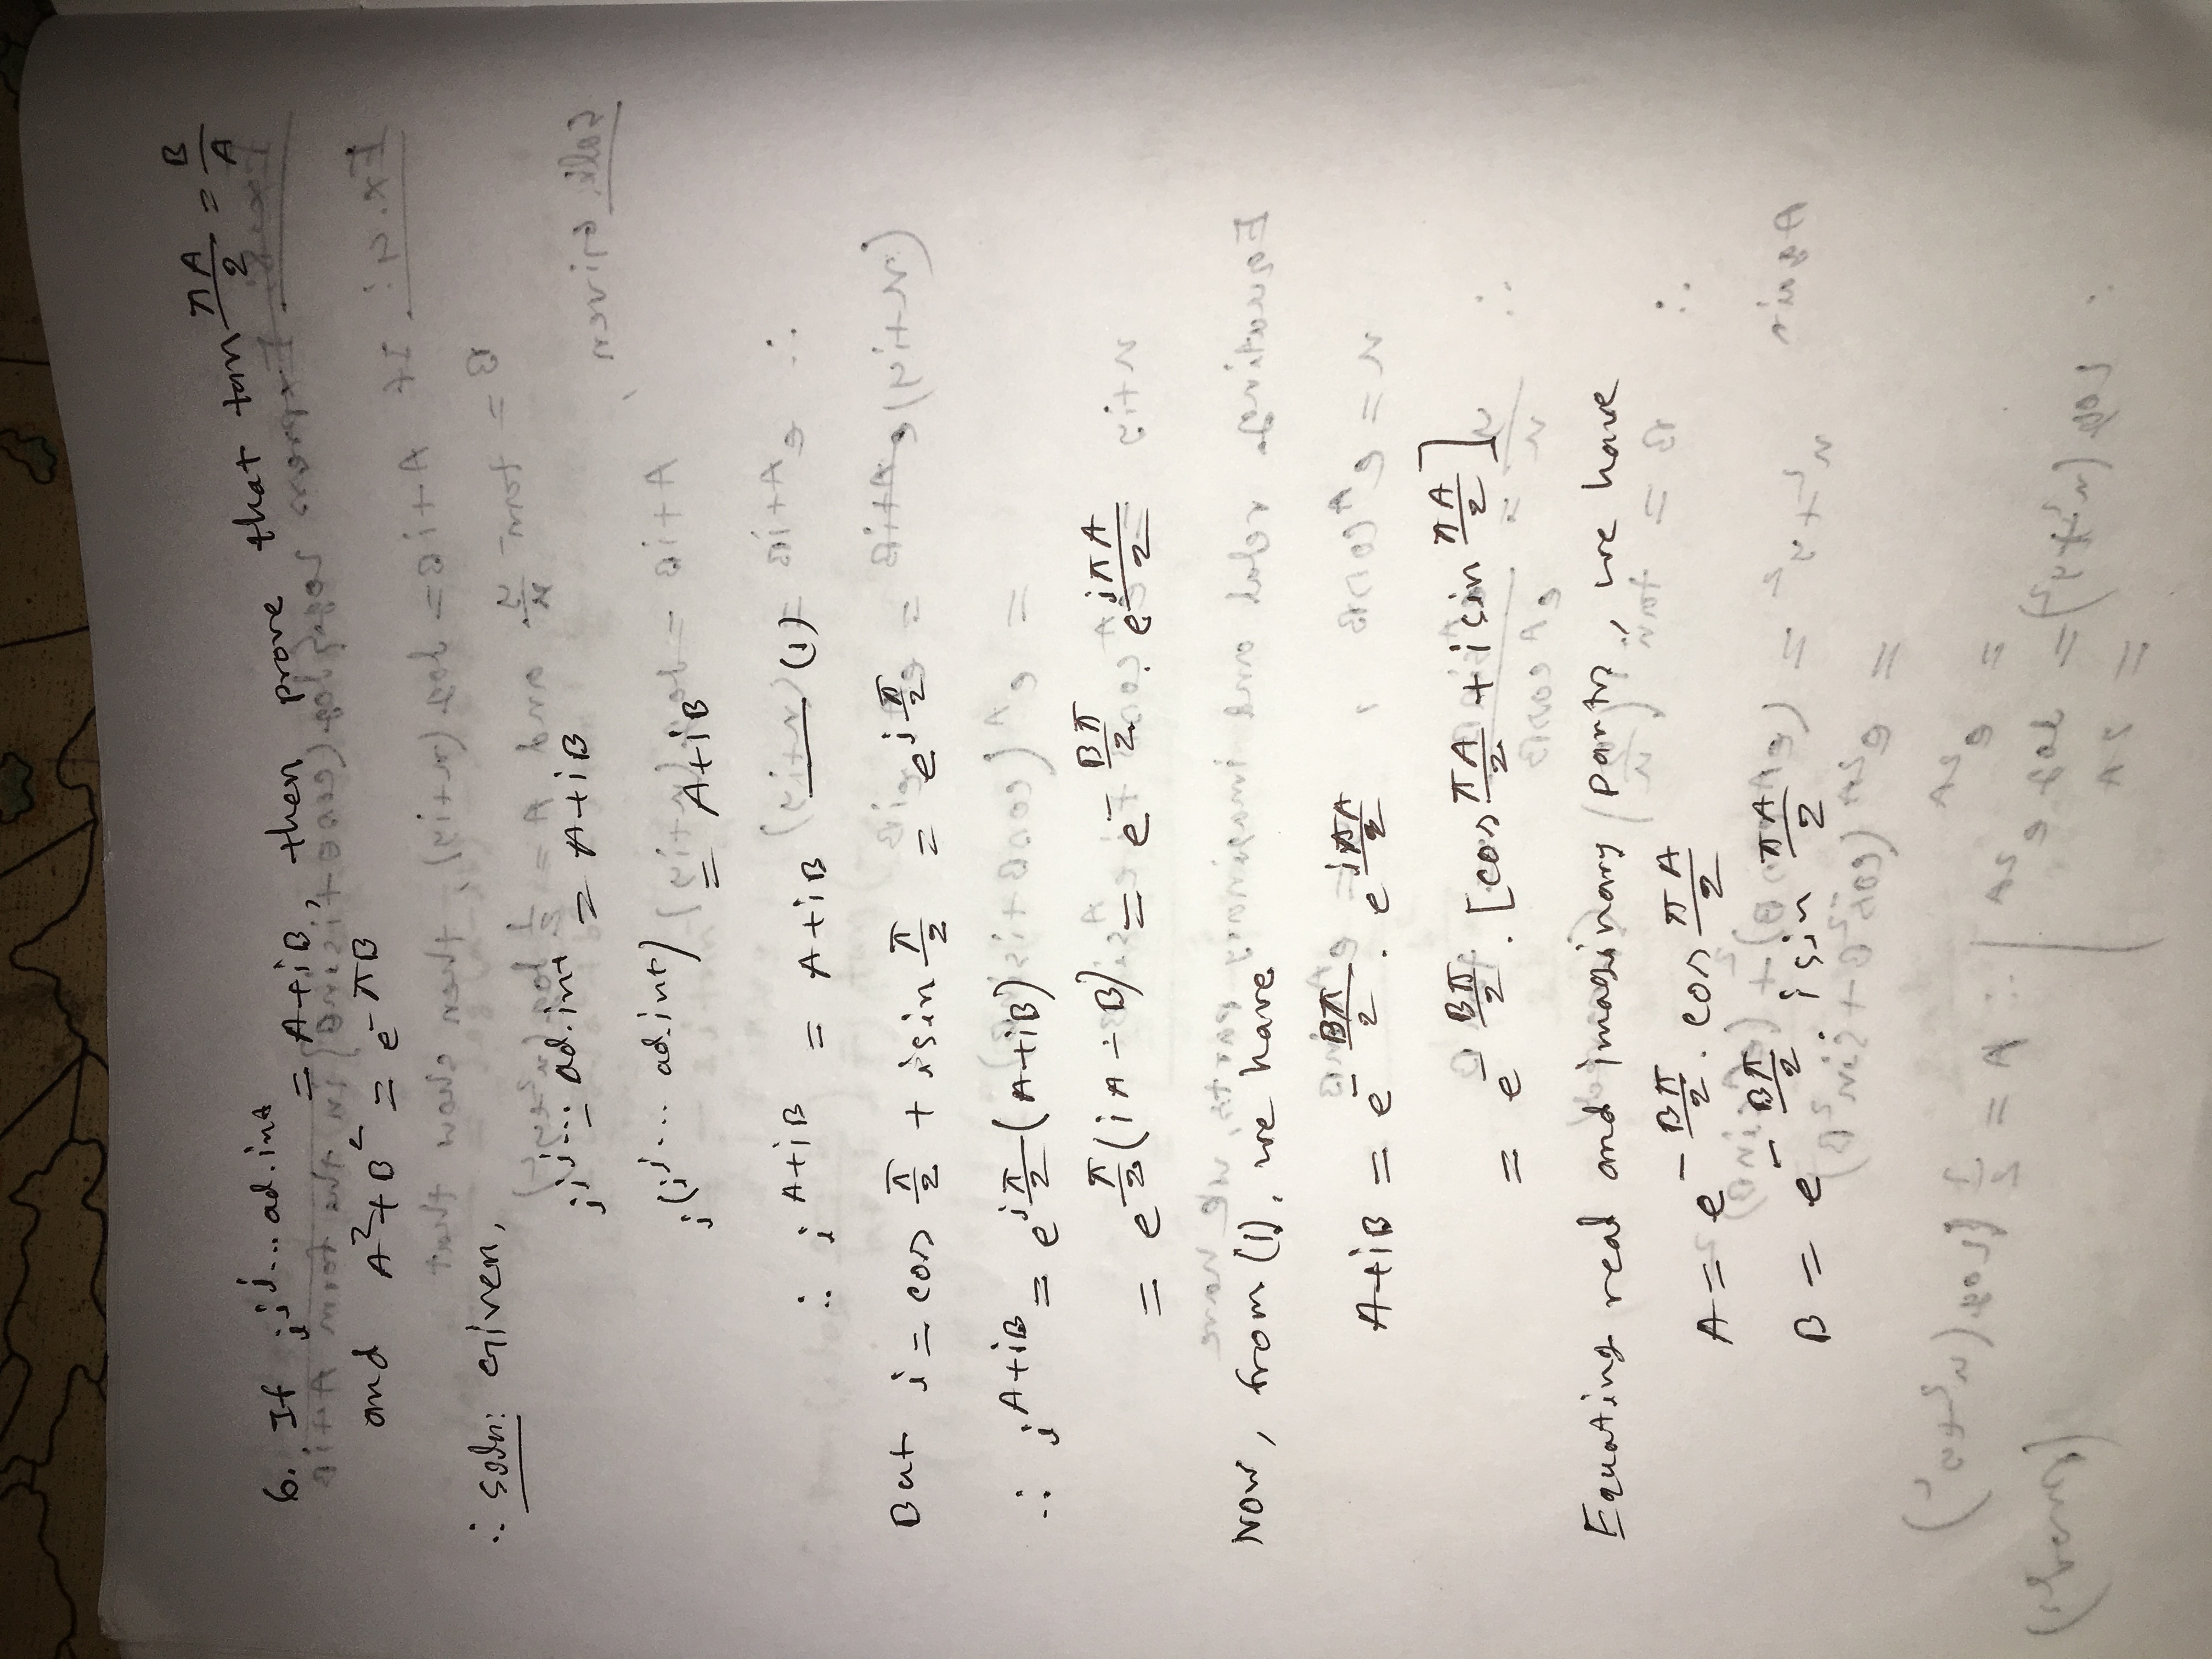 6. If i^i^i... ad.inf = A+iB, then prove that tan πA/2 = B/A
and A²+B² = e^-πB
∴ Soln: Given,
i^i^i... ad.inf = A+iB
i^(i^i... ad.inf) = A+iB
∴ i^A+iB = A+iB —— (1)
But i = cos π/2 + i sin π/2 = e^iπ/2
∴ i^A+iB = e^iπ/2(A+iB)
= e^π/2(iA-B) = e^-Bπ/2 . e^iπA/2
Now, from (1), we have
A+iB = e^-Bπ/2 . e^iπA/2
= e^-Bπ/2 . [cos πA/2 + i sin πA/2]
Equating real and imaginary parts, we have
A = e^-Bπ/2 . cos πA/2
B = e^-Bπ/2 . i sin πA/2